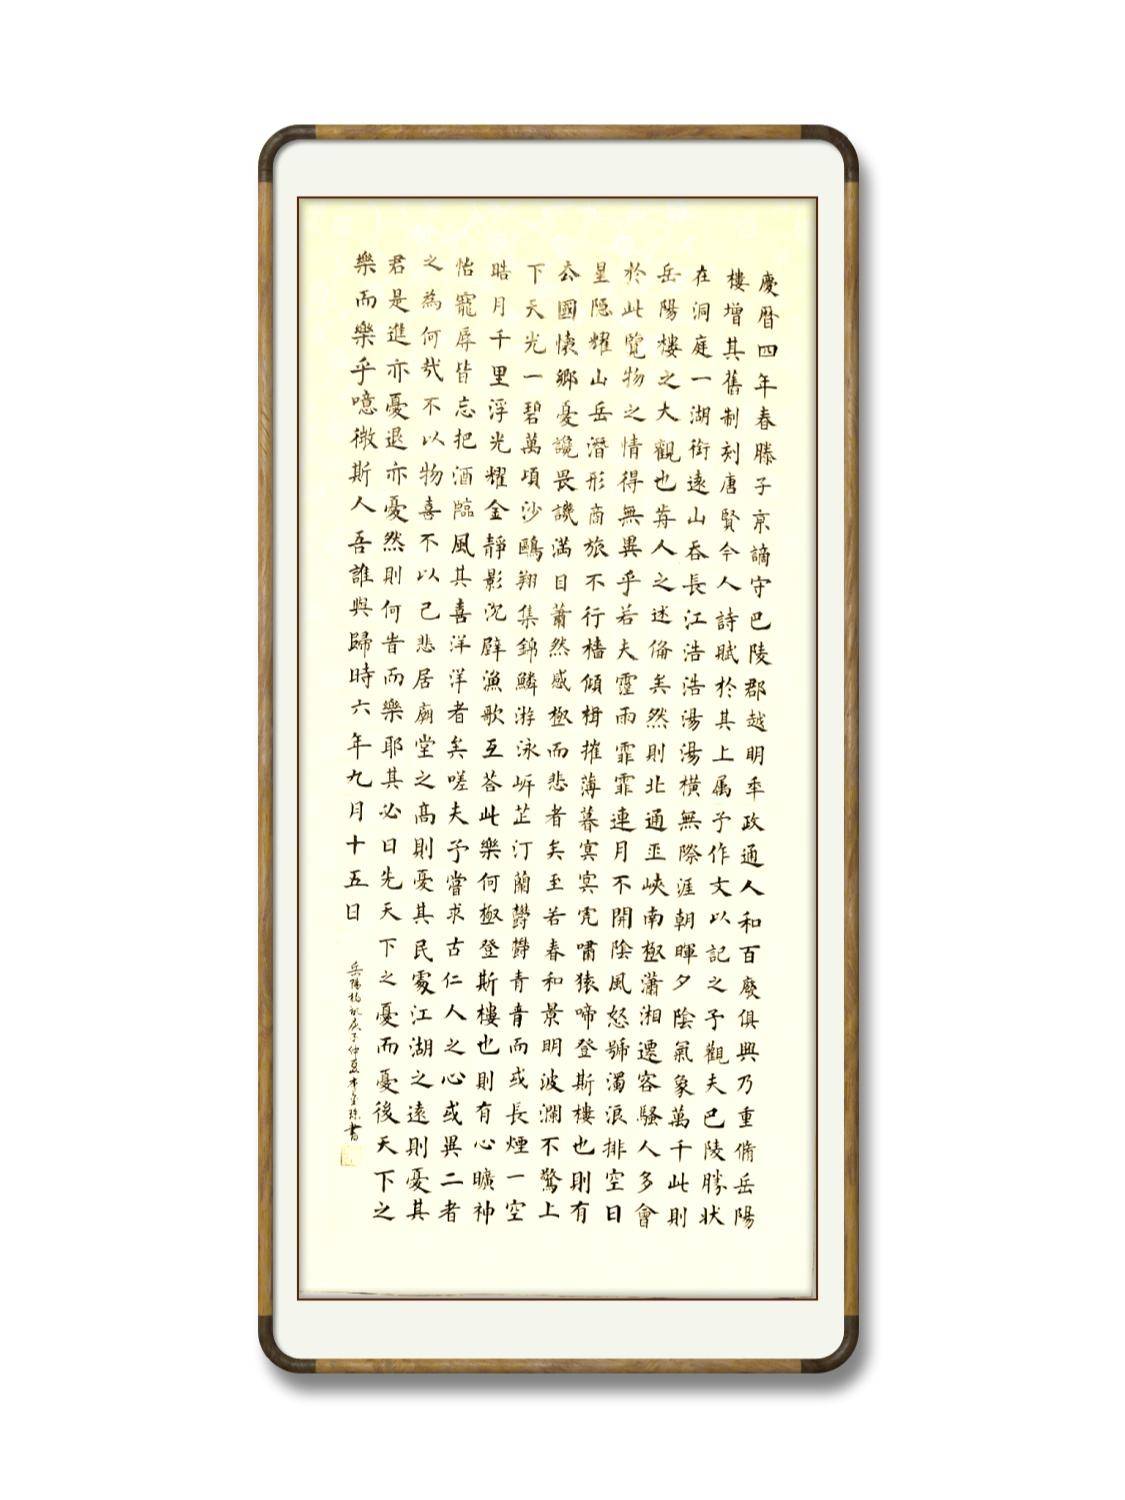 慶曆四年春滕子京謫守巴陵郡越明年政通人和百廢俱興乃重脩岳陽
樓增其舊制刻唐賢今人詩賦於其上属予作文以記之予觀夫巴陵勝狀
在洞庭一湖銜遠山吞長江浩浩湯湯橫無際涯朝暉夕陰氣象萬千此則
岳陽樓之大觀也前人之述備矣然則北通巫峽南極瀟湘遷客騷人多會
於此覽物之情得無異乎若夫霪雨霏霏連月不開陰風怒號濁浪排空日
星隱耀山岳潛形商旅不行檣傾楫摧薄暮冥冥虎嘯猿啼登斯樓也則有
去國懷鄉憂讒畏譏滿目蕭然感極而悲者矣至若春和景明波瀾不驚上
下天光一碧萬頃沙鷗翔集錦鱗游泳岸芷汀蘭鬱鬱青青而或長煙一空
皓月千里浮光耀金靜影沉璧漁歌互答此樂何極登斯樓也則有心曠神
怡寵辱皆忘把酒臨風其喜洋洋者矣嗟夫予嘗求古仁人之心或異二者
之為何哉不以物喜不以己悲居廟堂之高則憂其民處江湖之遠則憂其
君是進亦憂退亦憂然則何昔而樂耶其必曰先天下之憂而憂後天下之
樂而樂乎噫微斯人吾誰與歸時六年九月十五日
岳陽樓記庚子仲夏 書